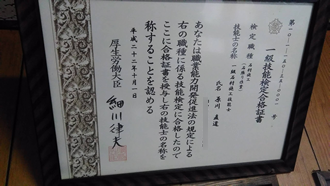 一級技能検定合格証書
検定職種
技能士の名称
氏名
あなたは職業能力開発促進法の規定による
右の職種に係る技能検定に合格したので
ここに合格証書を授与し右の技能士の名称を
称することを認める
平成二十二年十月一日
厚生労働大臣
細川律夫